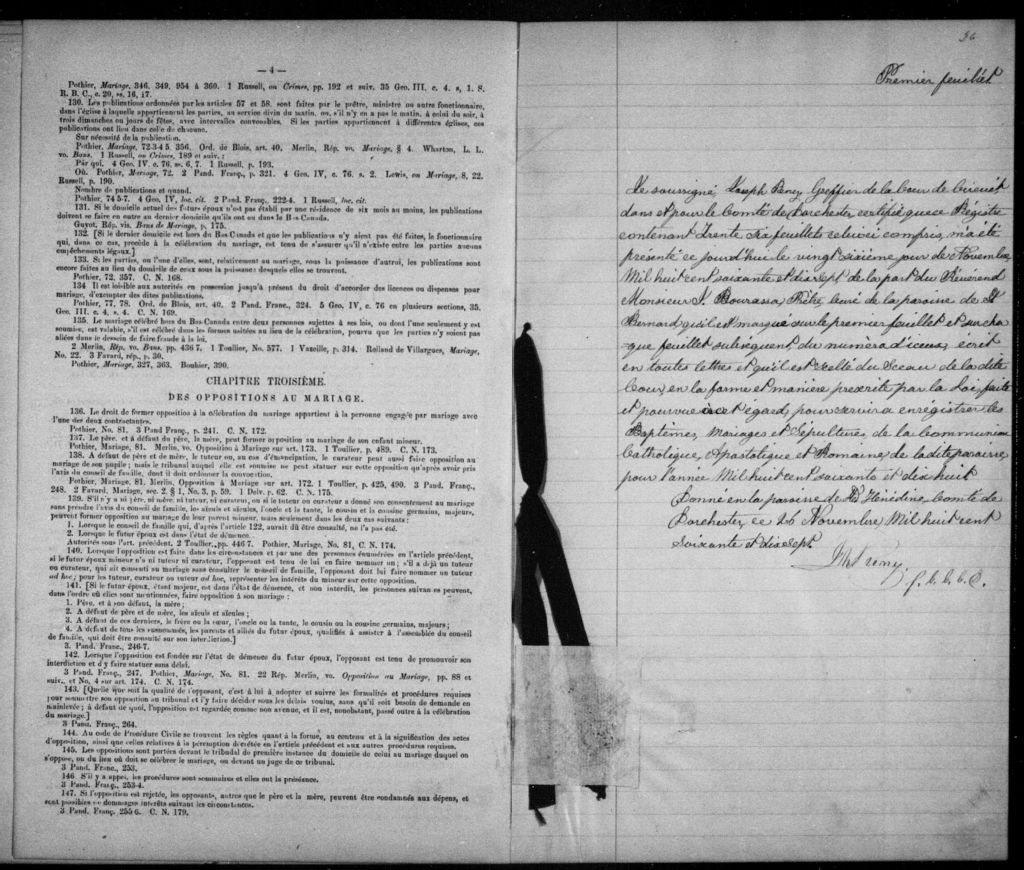 — 4 —
Pothier, Mariage, 346, 349, 954 à 360. 1 Russell, on Crimes, pp. 192 et suiv. 35 Geo. III, c. 4. s, 1. S.
R. B. C., c. 20, ss. 16, 17.
130. Les publications ordonnées par les articles 57 et 58, sont faites par le prêtre, ministre ou autre fonctionnaire,
dans l'église à laquelle appartiennent les parties, au service divin du matin, ou, s'il n'y en a pas le matin, à celui du soir, à
trois dimanches ou jours de fêtes, avec intervalles convenables. Si les parties appartiennent à différentes églises, ces
publications ont lieu dans celle de chacune.
Sur nécessité de la publication.
Pothier, Mariage, 72-3-4 5, 356. Ord. de Blois, art. 40. Merlin, Rép. vo. Mariage, § 4. Wharton, L. L.
vo. Bans. 1 Russell, on Crimes, 189 et suiv. :
Par qui. 4 Geo. IV, c. 76, ss. 6, 7. 1 Russell, p. 193.
Où. Pothier, Mariage, 72. 2 Pand. Franç., p. 321. 4 Geo. IV, c. 76, s. 2. Lewis, on Marriage, 8, 22.
Russell, p. 190.
Nombre de publications et quand.
Pothier, 74 5-7. 4 Geo. IV, loc. cit. 2 Pand. Franç., 222-4. 1 Russell, loc. cit.
131. Si le domicile actuel des futurs époux n'est pas établi par une résidence de six mois au moins, les publications
doivent se faire en outre au dernier domicile qu'ils ont eu dans le Bas Canada.
Guyot, Rép. vis. Bans de Mariage, p. 175.
132. [Si le dernier domicile est hors du Bas Canada et que les publications n'y aient pas été faites, le fonctionnaire
qui, dans ce cas, procède à la célébration du mariage, est tenu de s'assurer qu'il n'existe entre les parties aucuns
empêchements légaux.]
133. Si les parties, ou l'une d'elles, sont, relativement au mariage, sous la puissance d'autrui, les publications sont
encore faites au lieu du domicile de ceux sous la puissance desquels elles se trouvent.
Pothier, 72, 357. C. N. 168.
134 Il est loisible aux autorités en possession jusqu'à présent du droit d'accorder des licences ou dispenses pour
mariage, d'exempter des dites publications.
Pothier, 77, 78. Ord. de Blois, art. 40. 2 Pand. Franç., 324. 5 Geo. IV, c. 76 en plusieurs sections, 35.
Geo. III. c. 4, s. 4. C. N. 169.
135. Le mariage célébré hors du Bas-Canada entre deux personnes sujettes à ses lois, ou dont l'une seulement y est
soumise, est valable, s'il est célébré dans les formes usitées au lieu de la célébration, pourvu que les parties n'y soient pas
allées dans le dessein de faire fraude à la loi.
2 Merlin, Rép. vo. Bans. pp. 436 7. 1 Toullier, No. 577. 1 Vazeille, p. 314. Rolland de Villargues, Mariage,
No. 22. 3 Favard, rép., p. 30.
Pothier, Mariage, 327, 363. Bouhier, 390.
CHAPITRE TROISIÈME.
DES OPPOSITIONS AU MARIAGE.
136. Le droit de former opposition à la célébration du mariage appartient à la personne engagée par mariage avec
l'une des deux contractantes.
Pothier, No. 81. 3 Pand Franç., p. 241. C. N. 172.
137. Le père, et à défaut du père, la mère, peut former opposition au mariage de son enfant mineur.
Pothier, Mariage, 81. Merlin, vo. Opposition à Mariage sur art. 173. 1 Toullier, p. 489. C. N. 173.
138. A défaut de père et de mère, le tuteur ou, au cas d'émancipation, le curateur peut aussi faire opposition au
mariage de son pupile ; mais le tribunal auquel elle est soumise ne peut statuer sur cette opposition qu'après avoir pris
l'avis du conseil de famille, dont il doit ordonner la convocation.
Pothier, Mariage, 81. Merlin, Opposition à Mariage sur art. 172. 1 Toullier, p. 425, 490. 3 Pand. Franç.,
248. 2 Favard, Mariage, sec. 2. § 1, No. 3, p. 59. 1 Delv. p. 62. C. N. 175.
139. S'il n'y a ni père, ni mère, ni tuteur, ni curateur, ou si le tuteur ou curateur a donné son consentement au mariage
sans prendre l'avis du conseil de famille, les aïeuls et aïeules, l'oncle et la tante, le cousin et la cousine germains, majeurs,
peuvent former opposition au mariage de leur parent mineur, mais seulement dans les deux cas suivants :
1. Lorsque le conseil de famille qui, d'après l'article 122, aurait dû être consulté, ne l'a pas été.
2. Lorsque le futur époux est dans l'état de démence.
Autorités sous l'art. précédent. 2 Toullier, pp. 446 7. Pothier, Mariage, No. 81, C. N. 174.
140. Lorsque l'opposition est faite dans les circonstances et par une des personnes énumérées en l'article précédent,
si le futur époux mineur n'a ni tuteur ni curateur, l'opposant est tenu de lui en faire nommer un ; s'il a déjà un tuteur
ou curateur, qui ait consenti au mariage sans consulter le conseil de famille, l'opposant doit lui faire nommer un tuteur
ad hoc ; pour les tuteur, curateur ou tuteur ad hoc, représenter les intérêts du mineur sur cette opposition.
141. [Si le futur époux, étant majeur, est dans l'état de démence, et non interdit, les personnes suivantes peuvent,
dans l'ordre où elles sont mentionnées, faire opposition à son mariage :
1. Père, et à son défaut, la mère ;
2. A défaut de père et de mère, les aïeuls et aïeules ;
3. A défaut de ces derniers, le frère ou la sœur, l'oncle ou la tante, le cousin ou la cousine germains, majeurs ;
4. A défaut de tous les susnommés, les parents et alliés du futur époux, qualifiés à assister à l'assemblée du conseil
de famille, qui doit être consulté sur son interdiction.]
3. Pand. Franç., 246-7.
142. Lorsque l'opposition est fondée sur l'état de démence du futur époux, l'opposant est tenu de promouvoir son
interdiction et d'y faire statuer sans délai.
3 Pand. Franç., 247. Pothier, Mariage, No. 81. 22 Rép. Merlin, vo. Opposition au Mariage, pp. 88 et
suiv., et No. 4 sur art. 174. C. N. 174.
143. [Quelle que soit la qualité de l'opposant, c'est à lui à adopter et suivre les formalités et procédures requises
pour soumettre son opposition au tribunal et l'y faire décider sous les délais voulus, sans qu'il soit besoin de demande en
mainlevée ; à défaut de quoi, l'opposition est regardée comme non avenue, et il est, nonobstant, passé outre à la célébration
du mariage.]
3 Pand. Franç., 264.
144. Au code de Procédure Civile se trouvent les règles quant à la forme, au contenu et à la signification des actes
d'opposition, ainsi que celles relatives à la péremption décrétée en l'article précédent et aux autres procédures requises.
145. Les oppositions sont portées devant le tribunal de première instance du domicile de celui au mariage duquel on
s'oppose, ou du lieu où doit se célébrer le mariage, ou devant un juge de ce tribunal.
3 Pand. Franc., 253.
146. S'il y a appel, les procédures sont sommaires et elles ont la préséance.
3 Pand. Franç., 253-4.
147. Si l'opposition est rejetée, les opposants, autres que le père et la mère, peuvent être condamnés aux dépens, et
sont passibles de dommages intérêts suivant les circonstances.
3 Pand. Franç. 255-6. C. N. 179.
36
Premier feuillet
Le soussigné Joseph Remy Greffier de la Cour de Circuit
dans et pour le Comté de Dorchester certifie que ce Régistre
contenant Trente Six feuillets celui ci compris, m'a été
présenté ce jourd'hui le vingt sixième jour de Novembre
Mil huit cent soixante et dix sept de la part du Révérend
Monsieur J. Bourassa, Ptre, Curé de la paroisse de St
Bernard qu'il est marqué sur le premier feuillet et sur cha
-que feuillet subséquent du numéro d'iceux, ecrit
en toutes lettres et qu'il est scellé du Sceau de la dite
Cour, en la forme et manière prescrite par la Loi faite
et pourvue à cet egard, pour servir a enrégistrer les
Baptêmes, Mariages et Sépultures, de la Communion
Catholique, Apostolique et Romaine, de la dite paroisse
pour l'année Mil huit cent soixante et dix huit
Donné en la paroisse de Ste Hénédine, Comté de
Dorchester, ce 26 Novembre, Mil huit cent
Soixante et dix sept